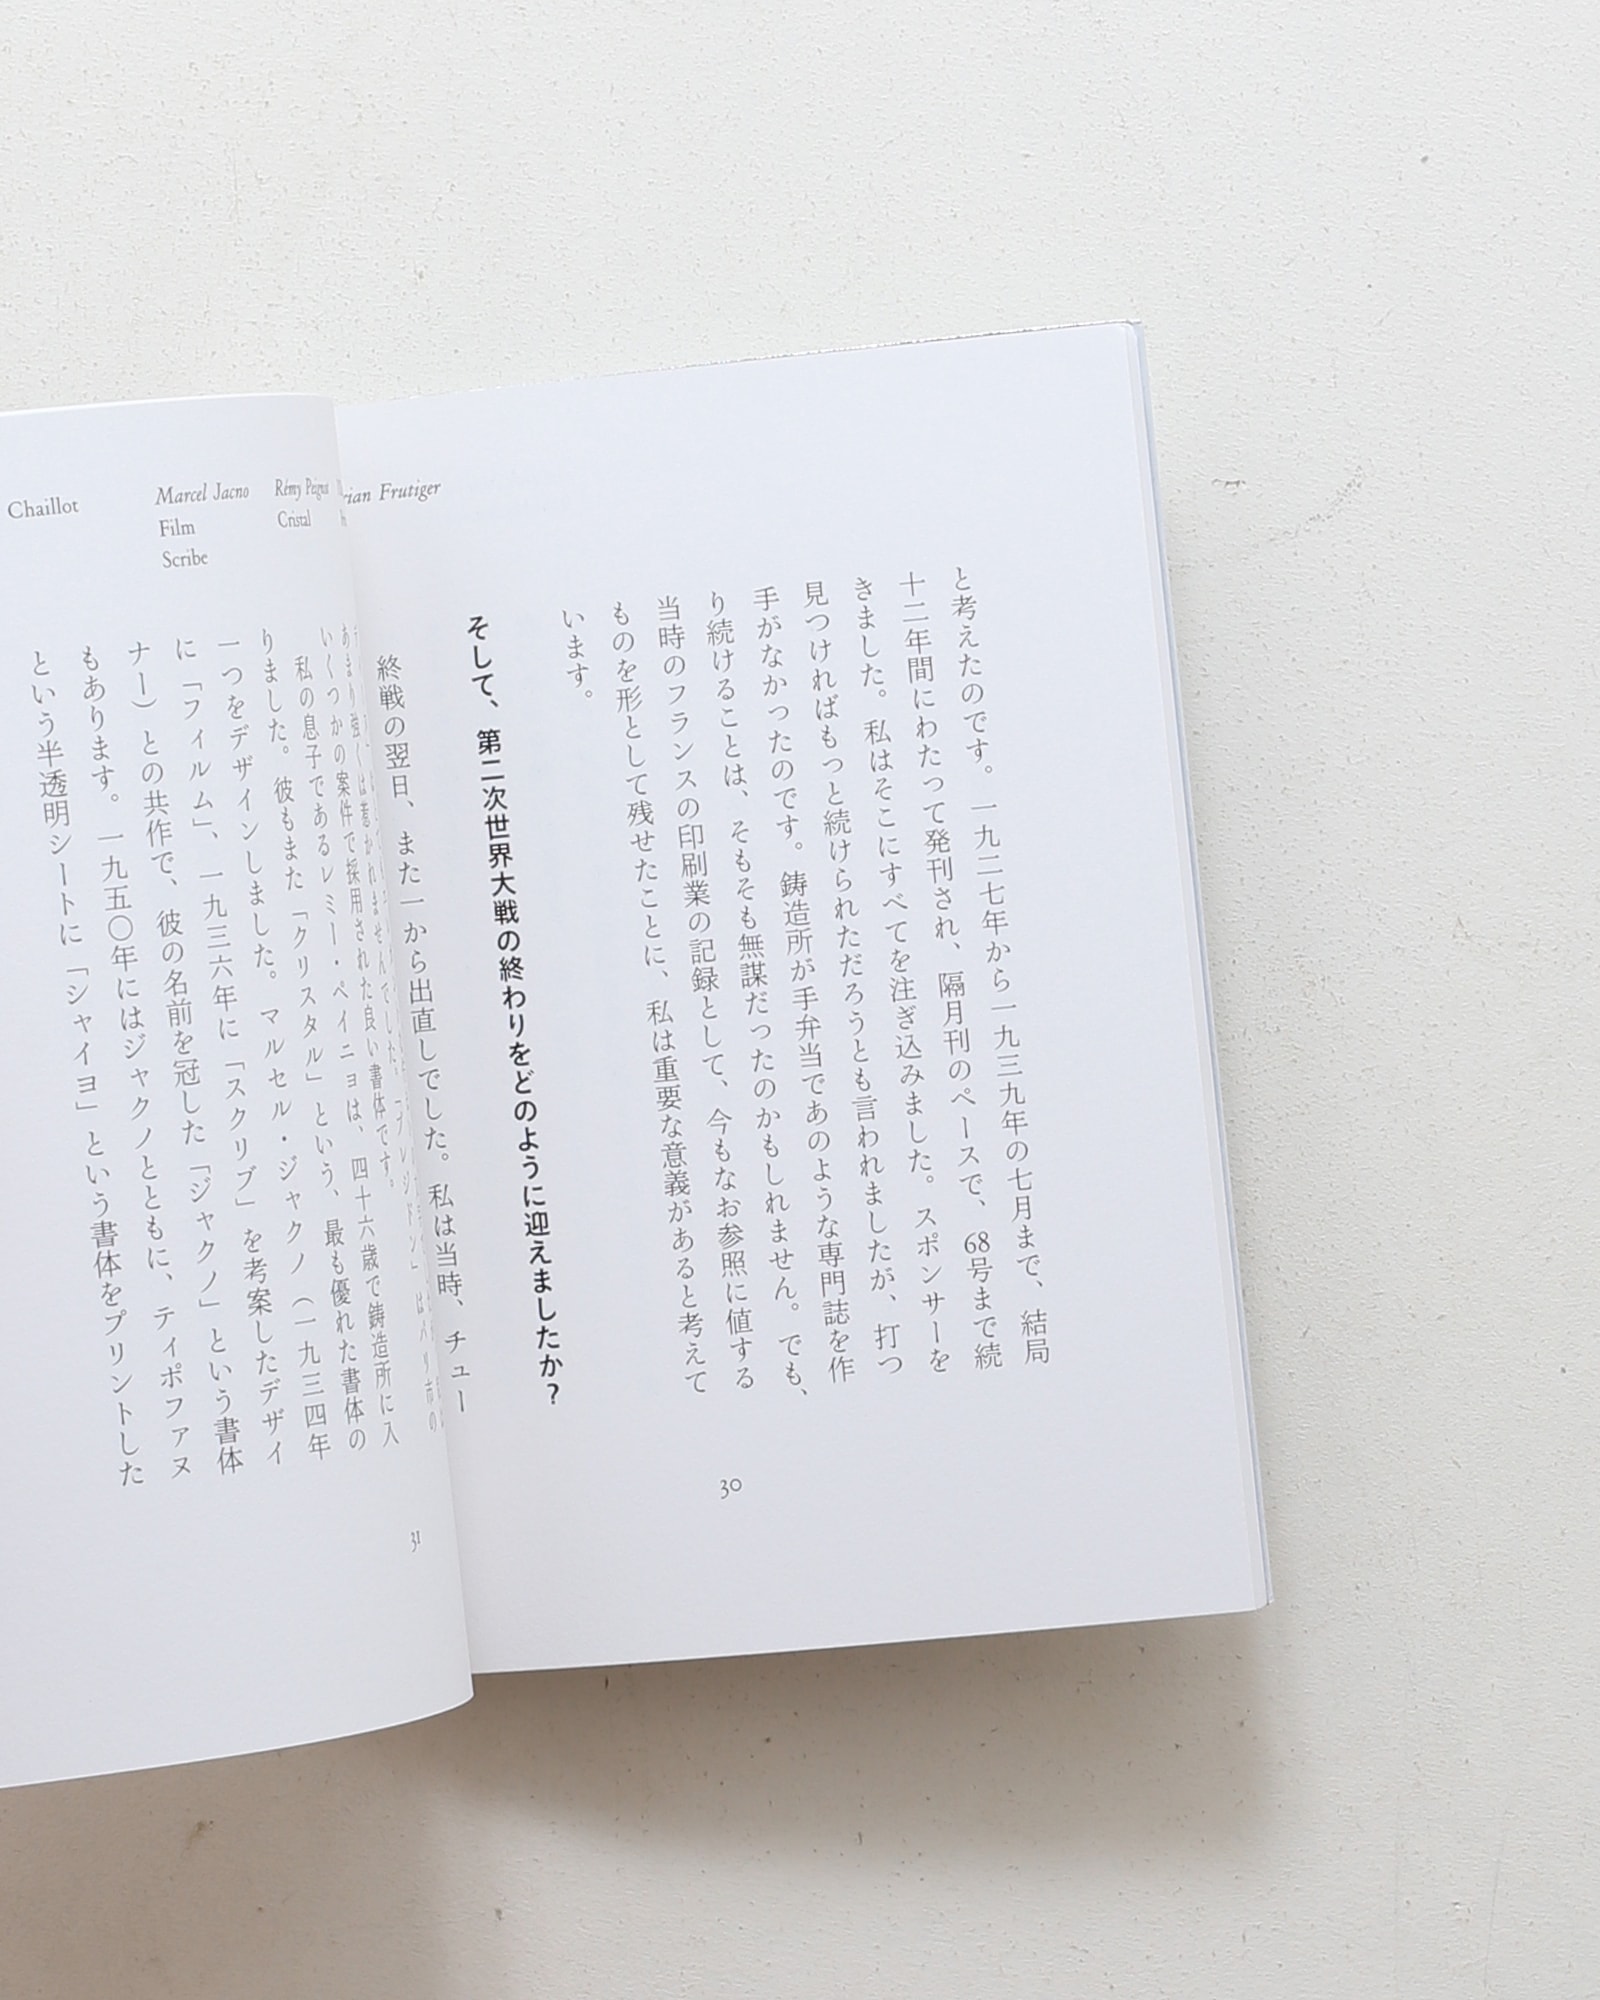 と考えたのです。一九二七年から一九三九年の七月まで、結局
十二年間にわたって発刊され、隔月刊のペースで、68号まで続
きました。私はそこにすべてを注ぎ込みました。スポンサーを
見つければもっと続けられただろうとも言われましたが、打つ
手がなかったのです。鋳造所が手弁当であのような専門誌を作
り続けることは、そもそも無謀だったのかもしれません。でも、
当時のフランスの印刷業の記録として、今もなお参照に値する
ものを形として残せたことに、私は重要な意義があると考えて
います。
そして、第二次世界大戦の終わりをどのように迎えましたか?
終戦の翌日、また一から出直しでした。私は当時、チュー
30
rian Frutiger
Rémy Peignot
Cristal
Marcel Jacno
Film
Scribe
Chaillot
あまり強くは惹かれませんでした。「プレジドン」はパリ市の
いくつかの案件で採用された良い書体です。
私の息子であるレミー・ペイニョは、四十六歳で鋳造所に入
りました。彼もまた「クリスタル」という、最も優れた書体の
一つをデザインしました。マルセル・ジャクノ(一九三四年
に「フィルム」、一九三六年に「スクリブ」を考案したデザイ
ナー)との共作で、彼の名前を冠した「ジャクノ」という書体
もあります。一九五〇年にはジャクノとともに、ティポファヌ
という半透明シートに「シャイヨ」という書体をプリントした
31